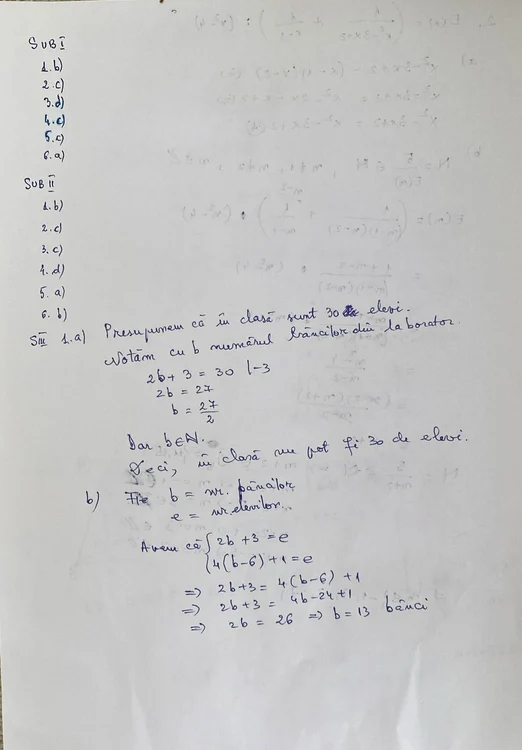 SUB I
1. b)
2. c)
3. d)
4. c)
5. c)
6. a)
SUB II
1. b)
2. c)
3. c)
4. d)
5. a)
6. b)
SIII 1. a) Presupunem că în clasă sunt 30 de elevi.
Notăm cu b numărul băncilor din laborator
2b + 3 = 30 |-3
2b = 27
b = 27/2
Dar b∈ℕ.
Deci, în clasă nu pot fi 30 de elevi.
b) Fie b = nr. băncilor
e = nr. elevilor.
Avem că { 2b + 3 = e
{ 4(b-6) + 1 = e
=> 2b+3 = 4(b-6) +1
=> 2b+3 = 4b-24+1
=> 2b = 26 => b = 13 bănci